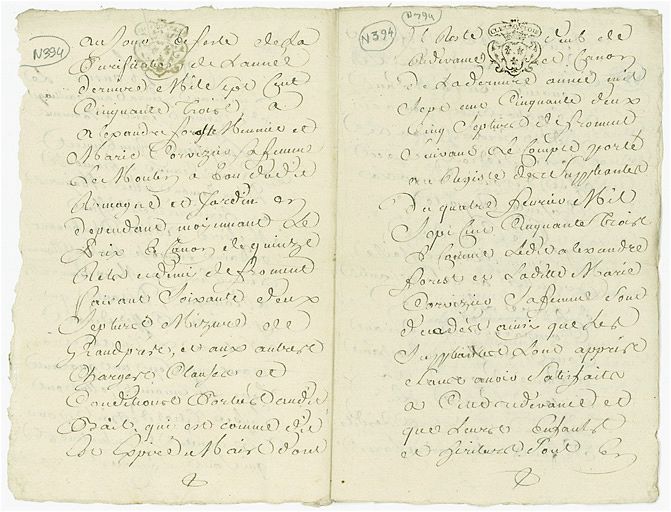 N394
au jour et feste de la
Purification de L'année
derniere Mile sept Cent
Cinquante trois, a
alexandre forest Mennier et
Marie Corvizier sa femme
Le Moulin a
Romagne et Jardin en
dependant, moyennant Le
Prix et Canon de quinze
et demi de froment
faisant Soixante deux
Septiers Mezure de
Grandpré, et aux autres
Charges Clauses et
Conditions Portées audit
Bail, qui est comme dit
est Expiré, Mais dont
N394
N394
il Reste deub de
Redevance et Canon
de La derniere année mil
sept cent Cinquante deux
Cinq Septiers de froment
suivant Le Compte porté
au Registre des Suppliantes
du quatre fevrier Mil
Sept Cent Cinquante trois
Et comme Ledit alexandre
forest et Ladite Marie
Corvizier sa femme sont
decedés ainsi que les
Suppliantes L'ont appris
sans avoir Satisfait
a Cette redevance et
que Leurs Enfants
et heritiers sont en